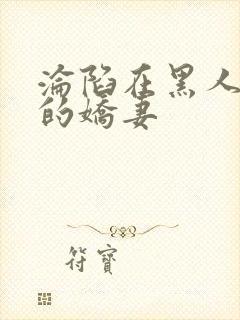 淪陷在黑人
的嬌妻
符寶